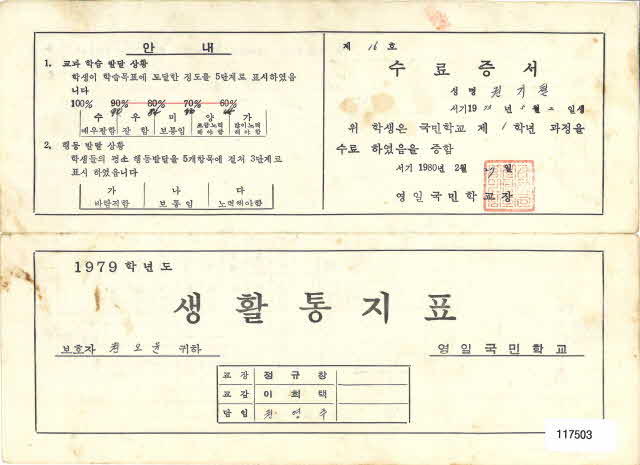 안 내
1. 교과 학습 발달 상황
학생이 학습목표에 도달한 정도를 5단계로 표시하였음
니다
100% 90% 80% 70% 60%
수 우 미 양 가
매우잘함 잘 함 보통임 조금노력해야 함 많이노력해야 함
2. 행동 발달 상황
학생들의 평소 행동발달을 5개항목에 걸쳐 3단계로
표시 하였읍니다
가 나 다
바람직함 보통임 노력해야함
제 16 호
수료증서
성명
서기19 년 월 일생
위 학생은 국민학교 제 1 학년 과정을
수료 하였음을 증함
서기 1980년 2월 일
영일국민학교장
1979 학년도
생활통지표
보호자 귀하
영일국민학교
교장 정규창
교감 이희택
담임
117503